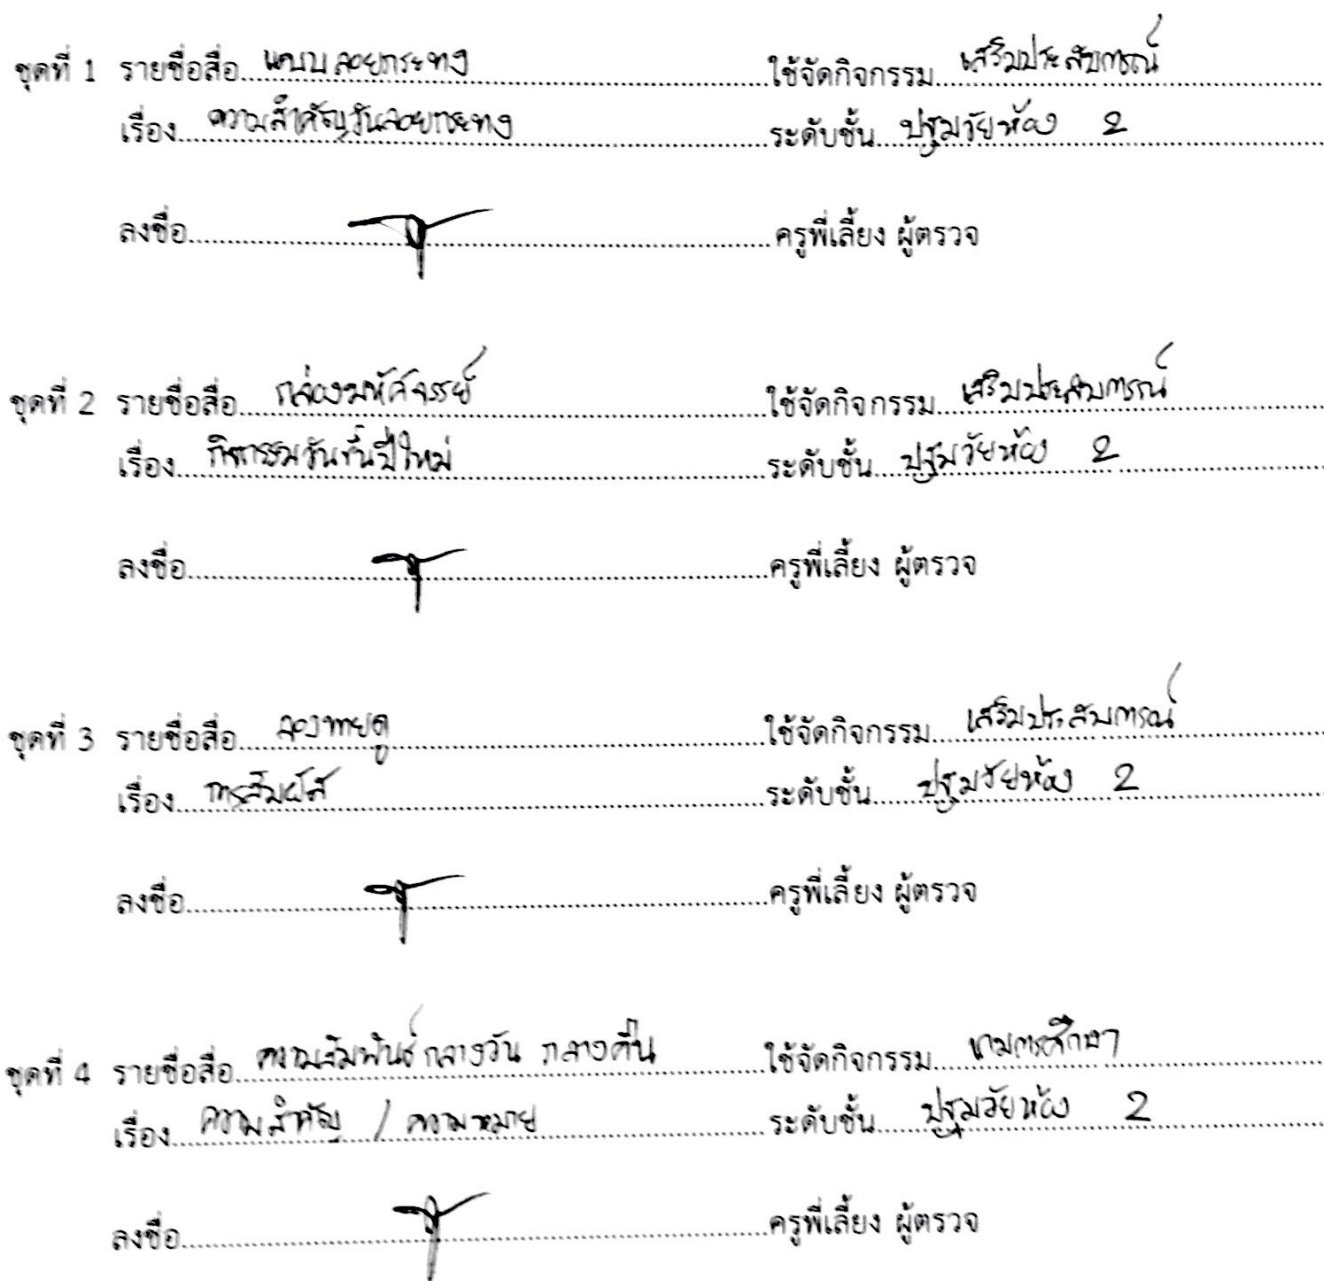 ชุดที่ 1 รายชื่อสื่อ แบบลอยกระทง ใช้จัดกิจกรรม เสริมประสบการณ์
เรื่อง ความสำคัญวันลอยกระทง ระดับชั้น ปฐมวัยห้อง 2
ลงชื่อ ครูพี่เลี้ยง ผู้ตรวจ
ชุดที่ 2 รายชื่อสื่อ กล่องมหัศจรรย์ ใช้จัดกิจกรรม เสริมประสบการณ์
เรื่อง กิจกรรมวันขึ้นปีใหม่ ระดับชั้น ปฐมวัยห้อง 2
ลงชื่อ ครูพี่เลี้ยง ผู้ตรวจ
ชุดที่ 3 รายชื่อสื่อ ลองทายดู ใช้จัดกิจกรรม เสริมประสบการณ์
เรื่อง การสัมผัส ระดับชั้น ปฐมวัยห้อง 2
ลงชื่อ ครูพี่เลี้ยง ผู้ตรวจ
ชุดที่ 4 รายชื่อสื่อ ความสัมพันธ์ กลางวัน กลางคืน ใช้จัดกิจกรรม เกมการศึกษา
เรื่อง ความสำคัญ / ความหมาย ระดับชั้น ปฐมวัยห้อง 2
ลงชื่อ ครูพี่เลี้ยง ผู้ตรวจ